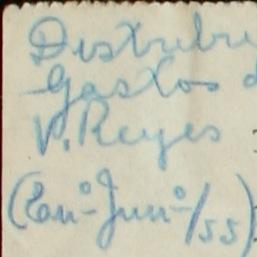 Distribu
Gastos d
V. Reyes
(Enº-Junº/55)